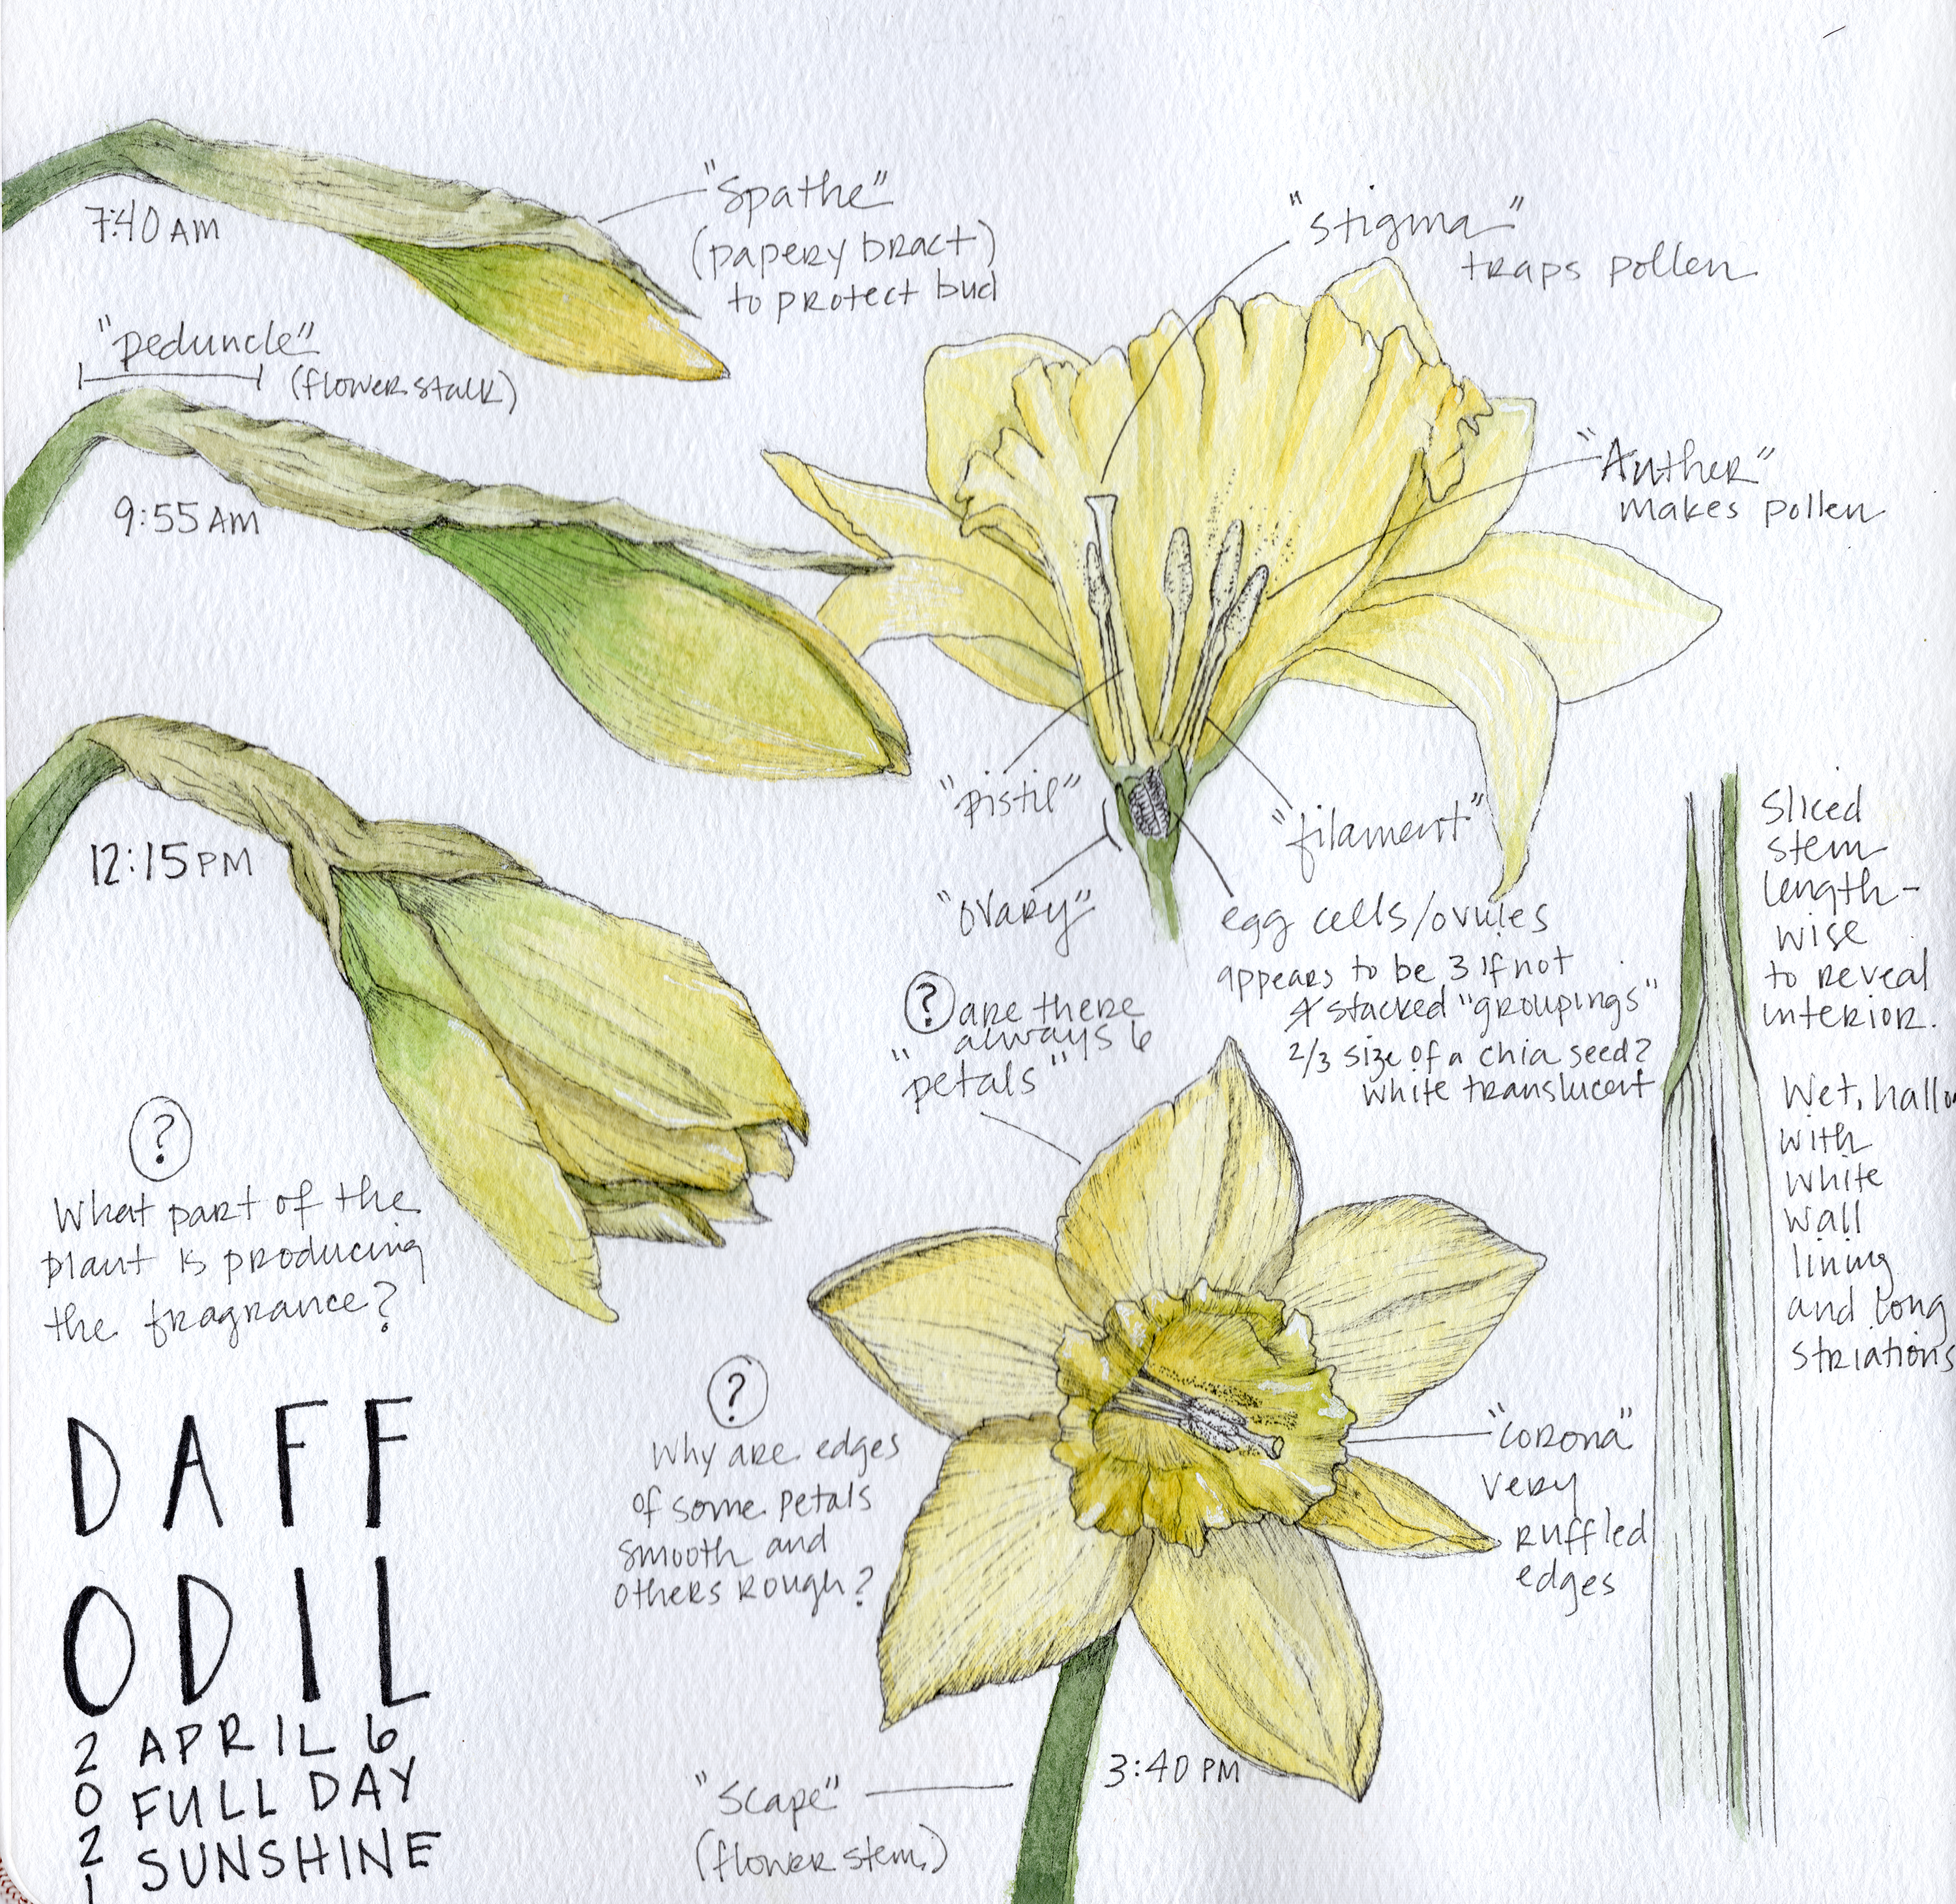 7:40 AM
"Spathe"
(papery bract)
to protect bud
"peduncle"
(flower stalk)
9:55 AM
12:15 PM
"stigma"
traps pollen
"Anther"
makes pollen
"pistil"
"filament"
"ovary"
egg cells/ovules
appears to be 3 if not
4 stacked "groupings"
2/3 size of a chia seed?
white translucent
? are there
"always 6
petals"
sliced
stem
length-
wise
to reveal
interior.
Wet,
with
white
wall
lining
and long
striations
?
What part of the
plant is producing
the fragrance?
?
Why are edges
of some petals
smooth and
others rough?
"corona"
very
ruffled
edges
3:40 PM
"Scape"
(flower stem)
DAFF
ODIL
2021
APRIL 6
FULL DAY
SUNSHINE